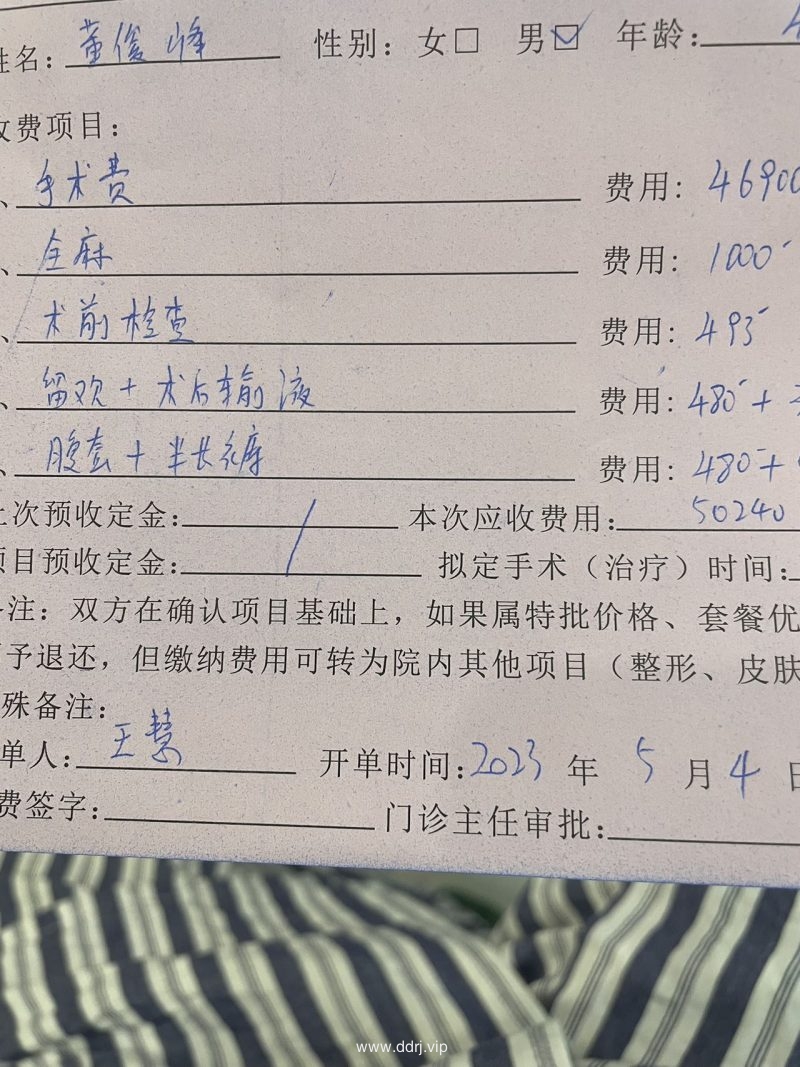 姓名：董俊峰 性别：女□ 男☑ 年龄：
收费项目：
、手术费 费用：46900
、全麻 费用：1000
、术前检查 费用：493
、留观+术后输液 费用：480+
、腹套+半长裤 费用：480+
上次预收定金： 本次应收费用：50240
项目预收定金： 拟定手术（治疗）时间：
备注：双方在确认项目基础上，如果属特批价格、套餐优
予退还，但缴纳费用可转为院内其他项目（整形、皮肤
殊备注：
单人：王慧 开单时间：2023年5月4日
费签字： 门诊主任审批：
www.ddrj.vip